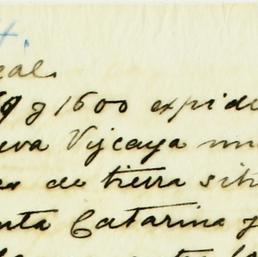 eal.
69 y 1600 expide
eva Vijcaya un
es de tierra sit
nta Catarina y